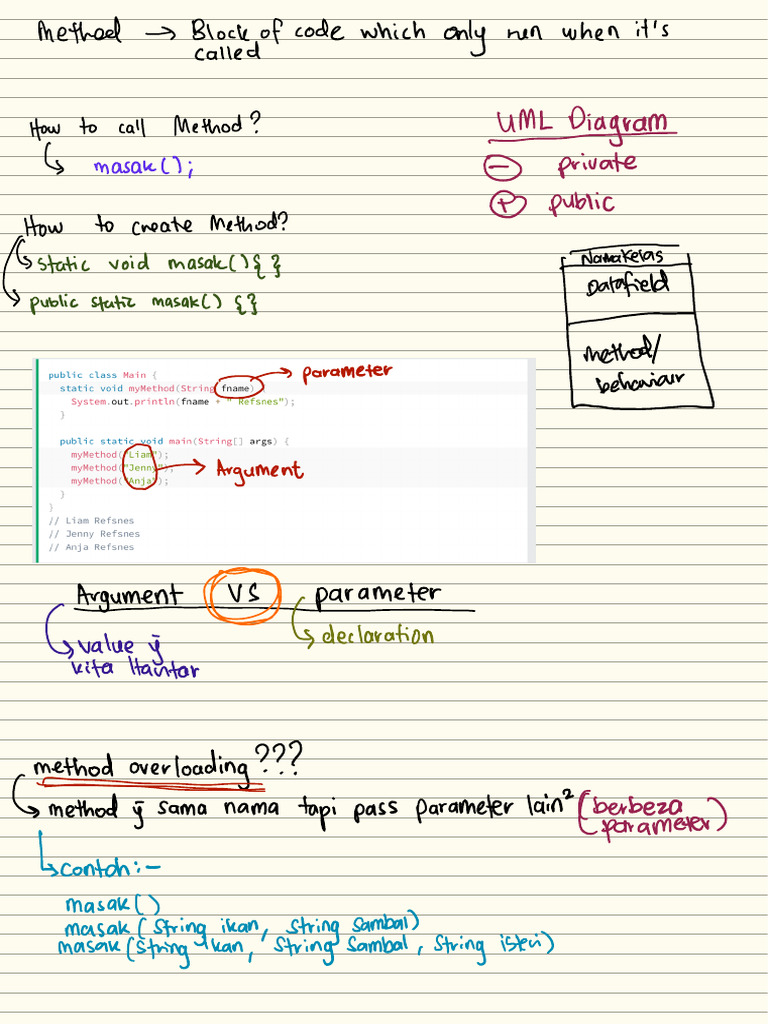 Method → Block of code which only run when it's
called
How to call Method?
masak();
UML Diagram
- private
+ public
How to create Method?
static void masak(){ }
public static masak() {}
NamaKelas
Datafield
Method/
behaviour
public class Main {
static void myMethod(String fname) → parameter
System.out.println(fname + " Refsnes");
}
public static void main(String[] args) {
myMethod("Liam");
myMethod("Jenny"); → Argument
myMethod("Anja");
}
}
// Liam Refsnes
// Jenny Refsnes
// Anja Refsnes
Argument VS parameter
value ȳ
kita Hantar
declaration
method overloading ???
method ȳ sama nama tapi pass parameter lain² (berbeza
parameter)
contoh:-
masak()
masak (String ikan, String sambal)
masak(String ikan, String Sambal, String isteri)